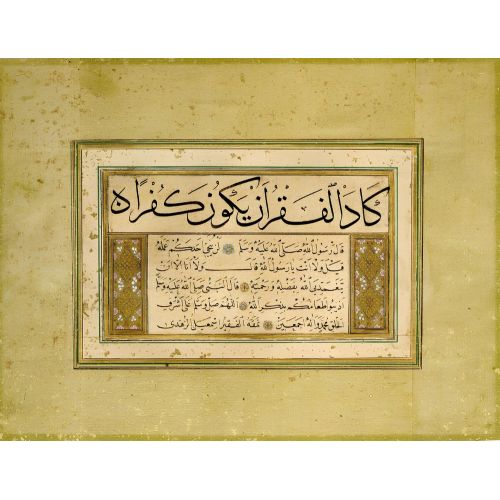 كَادَ الْفَقْرُ اَنْ يَكُونَ كُفْرًا
قَالَ رَسُولُ اللهِ صَلَّى اللهُ عَلَيْهِ وَسَلَّم لَنْ يُنْجِيَ اَحَدَكُمْ عَمَلُهُ
قِيلَ وَلَا اَنْتَ يَا رَسُولَ اللهِ قَالَ وَلَا اَنَا اِلَّا اَنْ
يَتَغَمَّدَنِيَ اللهُ بِفَضْلِهِ وَرَحْمَتِهِ قَالَ النَّبِيُّ صَلَّى اللهُ عَلَيْهِ وَسَلَّم
اَذِيبُوا طَعَامَكُمْ بِذِكْرِ اللهِ اَللّٰهُمَّ صَلِّ وَسَلِّمْ عَلَى اَشْرَفِ
الْخَلْقِ مُحَمَّدٍ وَاٰلِهِ اَجْمَعِينَ نَمَقَهُ الْفَقِيرُ اِسْمٰعِيلُ الزُّهْدِي